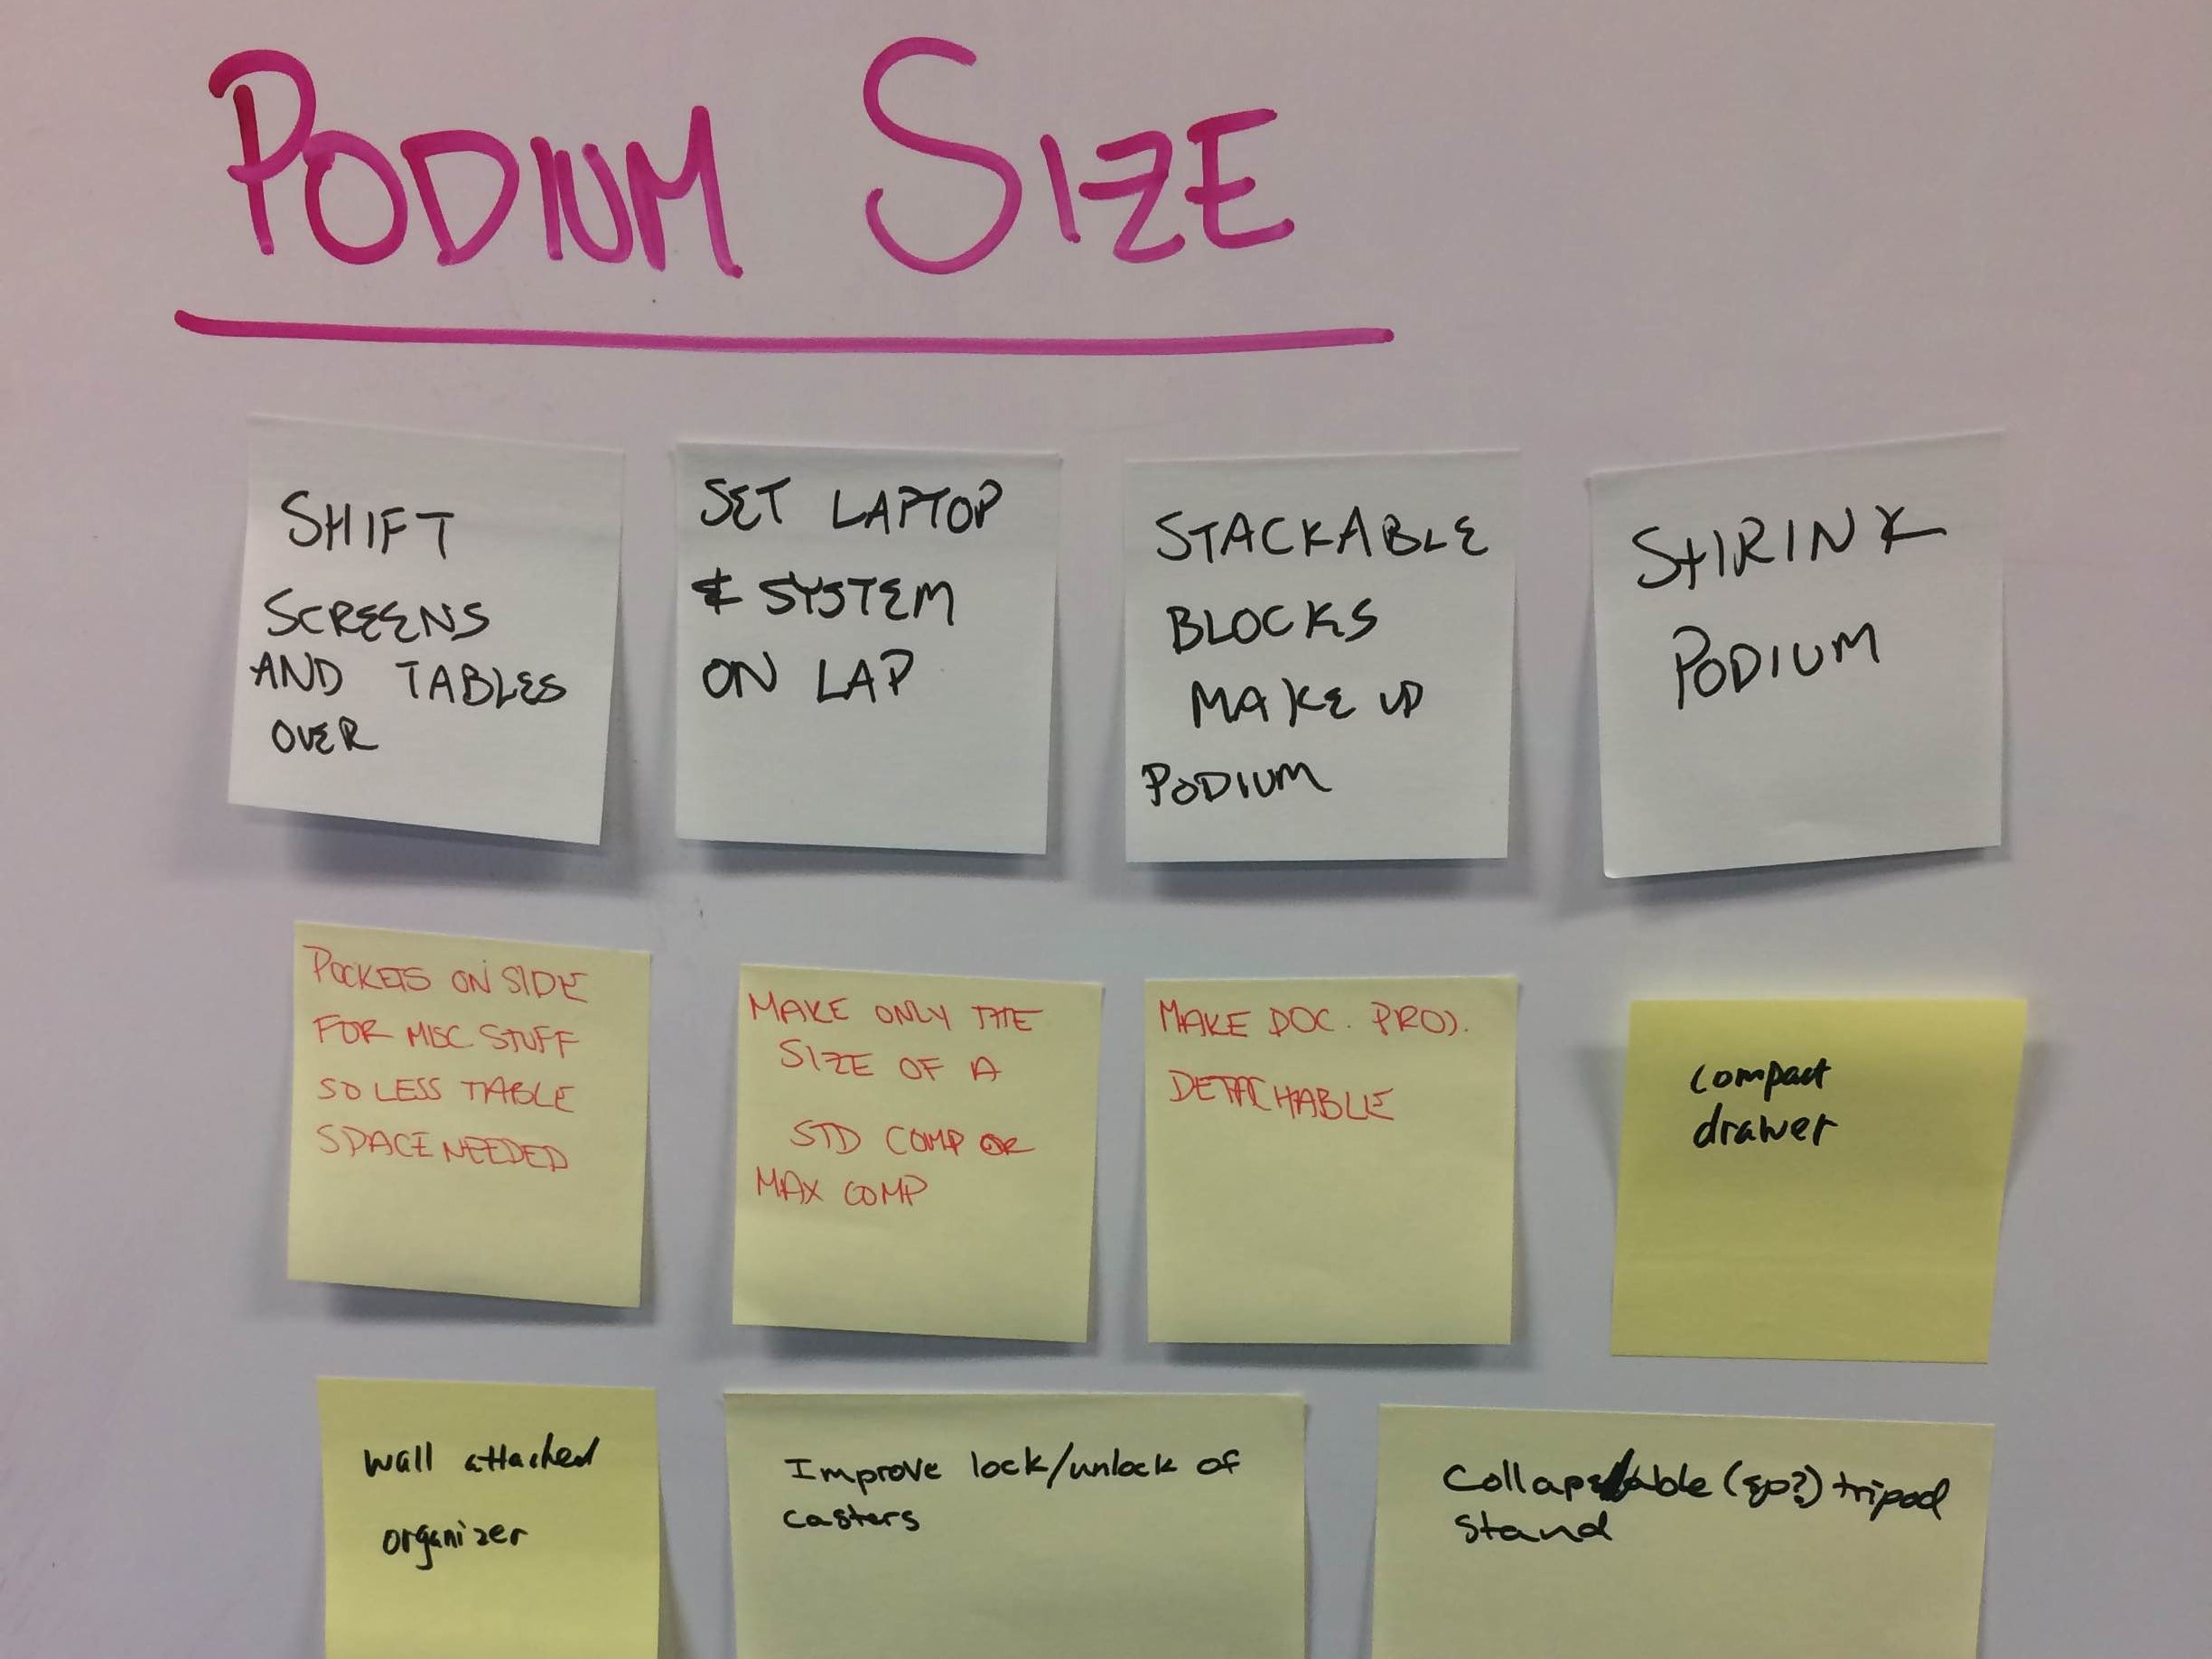 PODIUM SIZE
SHIFT
SCREENS
AND TABLES
OVER
SET LAPTOP
& SYSTEM
ON LAP
STACKABLE
BLOCKS
MAKE UP
PODIUM
SHRINK
PODIUM
POCKETS ON SIDE
FOR MISC STUFF
SO LESS TABLE
SPACE NEEDED
MAKE ONLY THE
SIZE OF A
STD COMP OR
MAX COMP
MAKE DOC. PROJ.
DETACHABLE
compact
drawer
wall attached
organizer
Improve lock/unlock of
casters
Collapsable (sp?) tripod
stand